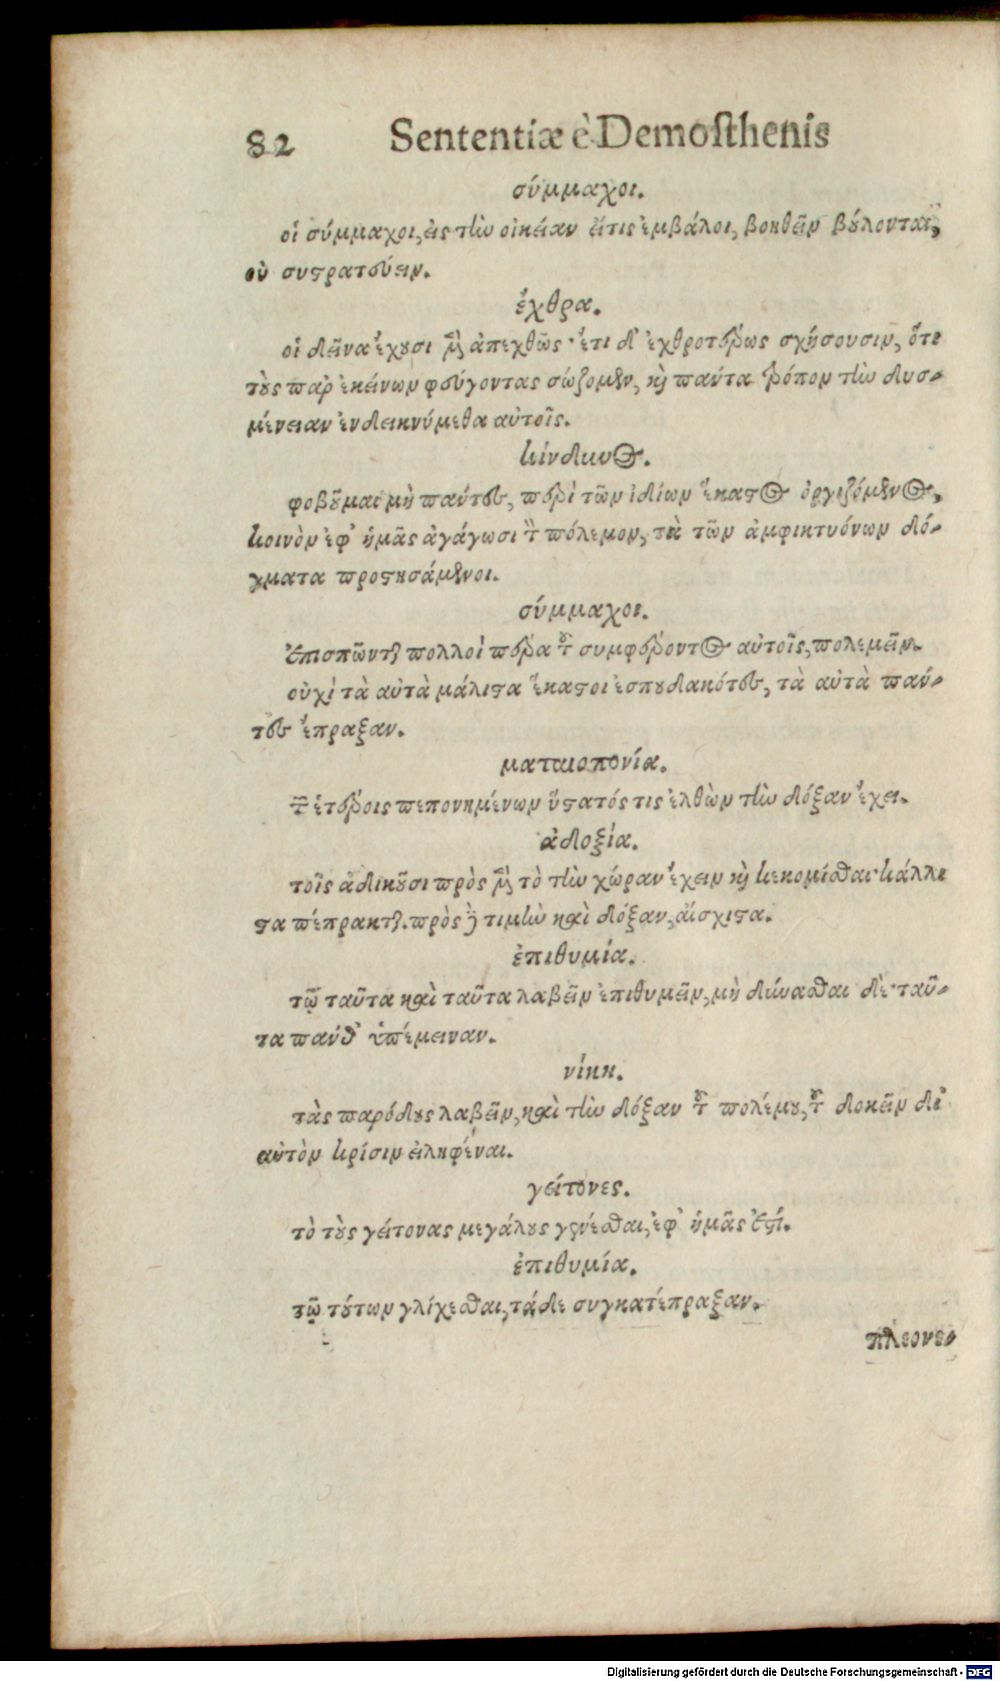 82 Sententiæ è Demosthenis
σύμμαχοι.
οἱ σύμμαχοι, εἰς τὴν οἰκείαν εἴ τις ἐμβάλοι, βοηθεῖν βούλονται,
οὐ συστρατεύειν.
ἔχθρα.
οἱ δεῖνα ἔχουσι μὲν ἀπεχθῶς· ἔτι δ' ἐχθροτέρως σχήσουσιν, ὅτε
τοὺς παρ' ἐκείνων φεύγοντας σώζομεν, καὶ πάντα τρόπον τὴν δυσ-
μένειαν ἐνδεικνύμεθα αὐτοῖς.
κίνδυνος.
φοβοῦμαι μὴ πάντες, περὶ τῶν ἰδίων ἕκαστος ὀργιζόμενος,
κοινὸν ἐφ' ἡμᾶς ἀγάγωσι τὸν πόλεμον, τὰ τῶν ἀμφικτυόνων δό-
γματα προστησάμενοι.
σύμμαχοι.
ἐπισπῶνται πολλοὶ πέρα τοῦ συμφέροντος αὐτοῖς, πολεμεῖν.
οὐχὶ τὰ αὐτὰ μάλιστα ἕκαστοι ἐσπουδακότες, τὰ αὐτὰ πάν-
τες ἔπραξαν.
ματαιοπονία.
τῶν ἑτέροις πεπονημένων ὕστατός τις ἐλθὼν τὴν δόξαν ἔχει.
ἀδοξία.
τοῖς ἀδικοῦσι πρὸς μὲν τὸ τὴν χώραν ἔχειν καὶ κεκομίσθαι κάλλι
στα πέπρακται. πρὸς δὲ τιμὴν καὶ δόξαν, αἴσχιστα.
ἐπιθυμία.
τῷ ταῦτα καὶ ταῦτα λαβεῖν ἐπιθυμεῖν, μὴ δύνασθαι δὲ· ταῦ-
τα πάνθ' ὑπέμειναν.
νίκη.
τὰς παρόδους λαβεῖν, καὶ τὴν δόξαν τοῦ πολέμου, τοῦ δοκεῖν δι'
αὐτὸν κρίσιν εἰληφέναι.
γείτονες.
τὸ τοὺς γείτονας μεγάλους γενέσθαι, ἐφ' ἡμᾶς ἐστί.
ἐπιθυμία.
τῷ τούτων γλίχεσθαι, τάδε συγκατέπραξαν.
πλεονε-
Digitalisierung gefördert durch die Deutsche Forschungsgemeinschaft - DFG